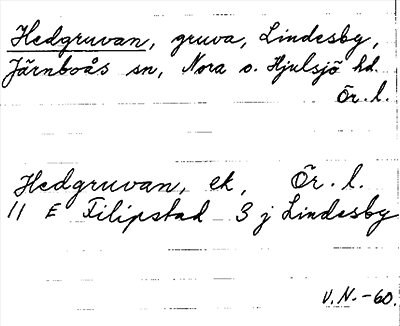 Hedgruvan, gruva, Lindesby,
Järnboås sn, Nora o. Hjulsjö hd.
Ör. l.
Hedgruvan, ek, Ör. l.
11 E Filipstad 3 j Lindesby
V.N.-60.